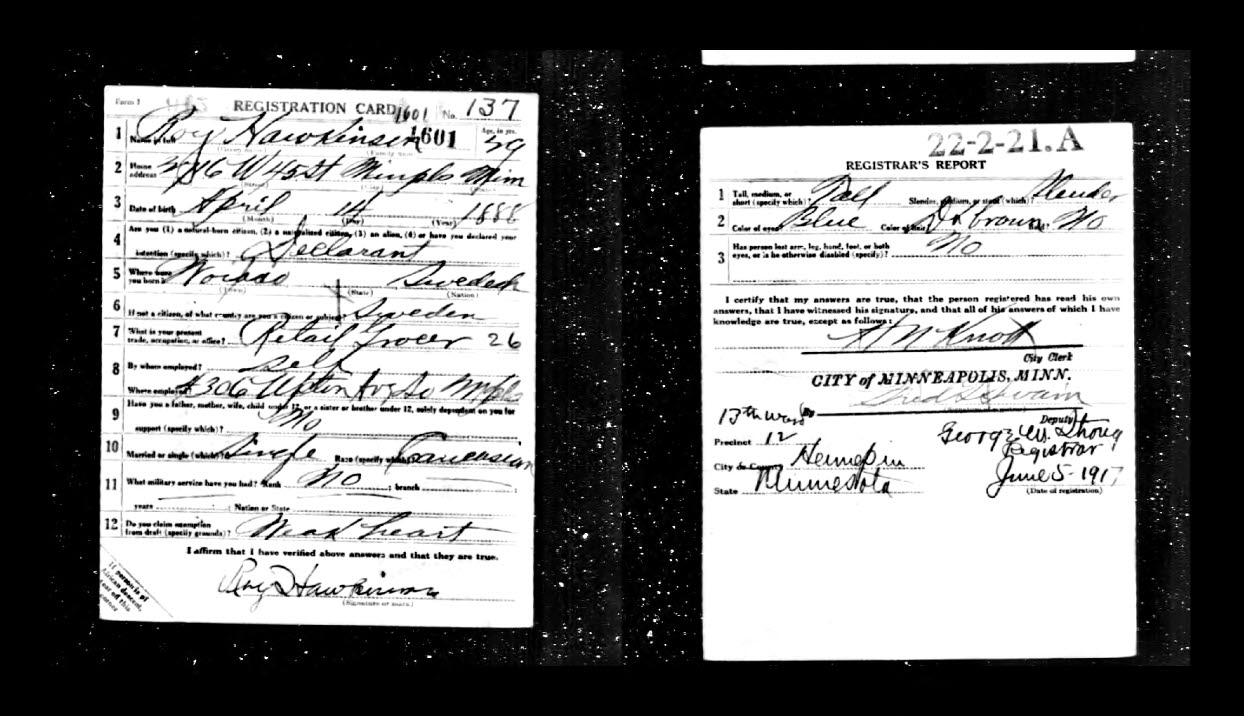 Form 1 REGISTRATION CARD 1601 No. 137
1 Name in full Roy Hawkinson 1601 Age, in yrs. 29
2 Home address W 45 St Minpls Minn
3 Date of birth April 14 1888
(Month) (Day) (Year)
4 Are you (1) a natural-born citizen, (2) a naturalized citizen, (3) an alien, (4) or have you declared your
intention (specify which)? Declarant
5 Where were you born? Sweden
(Town) (State) (Nation)
6 If not a citizen, of what country are you a citizen or subject? Sweden
7 What is your present trade, occupation, or office? Retail Grocer 26
8 By whom employed? Self
Where employed? 4306 Upton Av So Mpls
9 Have you a father, mother, wife, child under 12, or a sister or brother under 12, solely dependent on you for
support (specify which)? No
10 Married or single (which)? Single Race (specify which)? Caucasian
11 What military service have you had? Rank No ; branch ;
years ; Nation or State
12 Do you claim exemption from draft (specify grounds)? Weak heart
I affirm that I have verified above answers and that they are true.
Roy Hawkinson
(Signature or mark)
If person is of
African descent,
tear off this
corner
22-2-21. A
REGISTRAR'S REPORT
1 Tall, medium, or short (specify which)? Tall Slender, medium, or stout (which)? Slender
2 Color of eyes? Blue Color of hair? Dk Brown Bald? No
3 Has person lost arm, leg, hand, foot, or both eyes, or is he otherwise disabled (specify)? No
I certify that my answers are true, that the person registered has read his own
answers, that I have witnessed his signature, and that all of his answers of which I have
knowledge are true, except as follows:
City Clerk
CITY of MINNEAPOLIS, MINN.
By
Deputy
13th Ward
Precinct 12
George W.
Registrar
City or County Hennepin
State Minnesota
June 5 - 1917
(Date of registration)